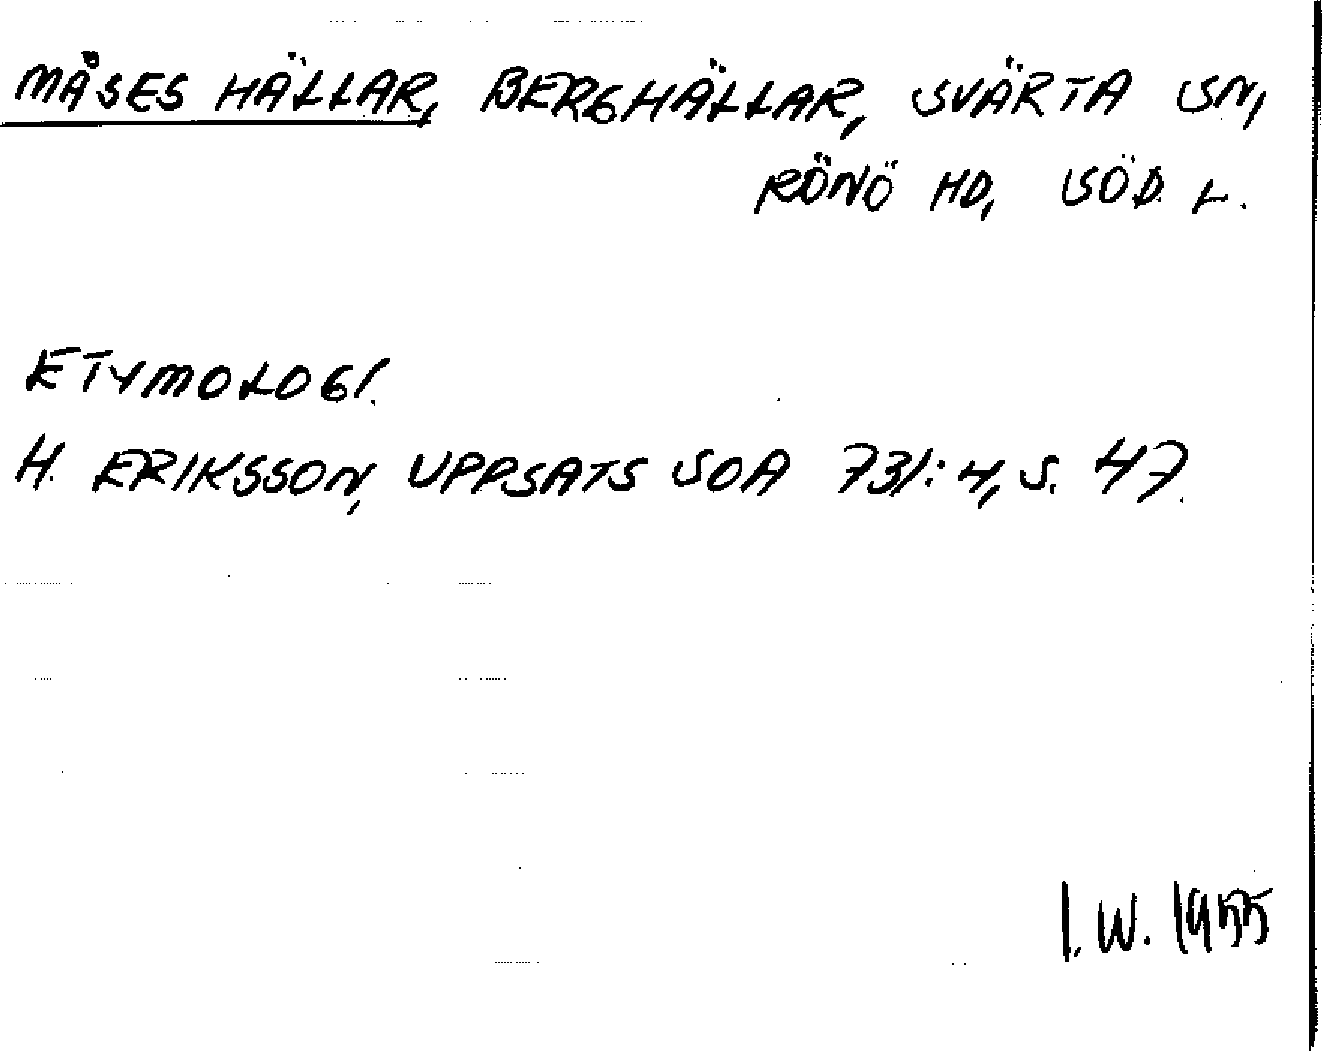 MÅSES HÄLLAR, BERGHÄLLAR, SVÄRTA SN,
RÖNÖ HD, SÖD. L.
ETYMOLOGI.
H. ERIKSSON, UPPSATS SOA 731:4, S. 47.
I.W. 1955